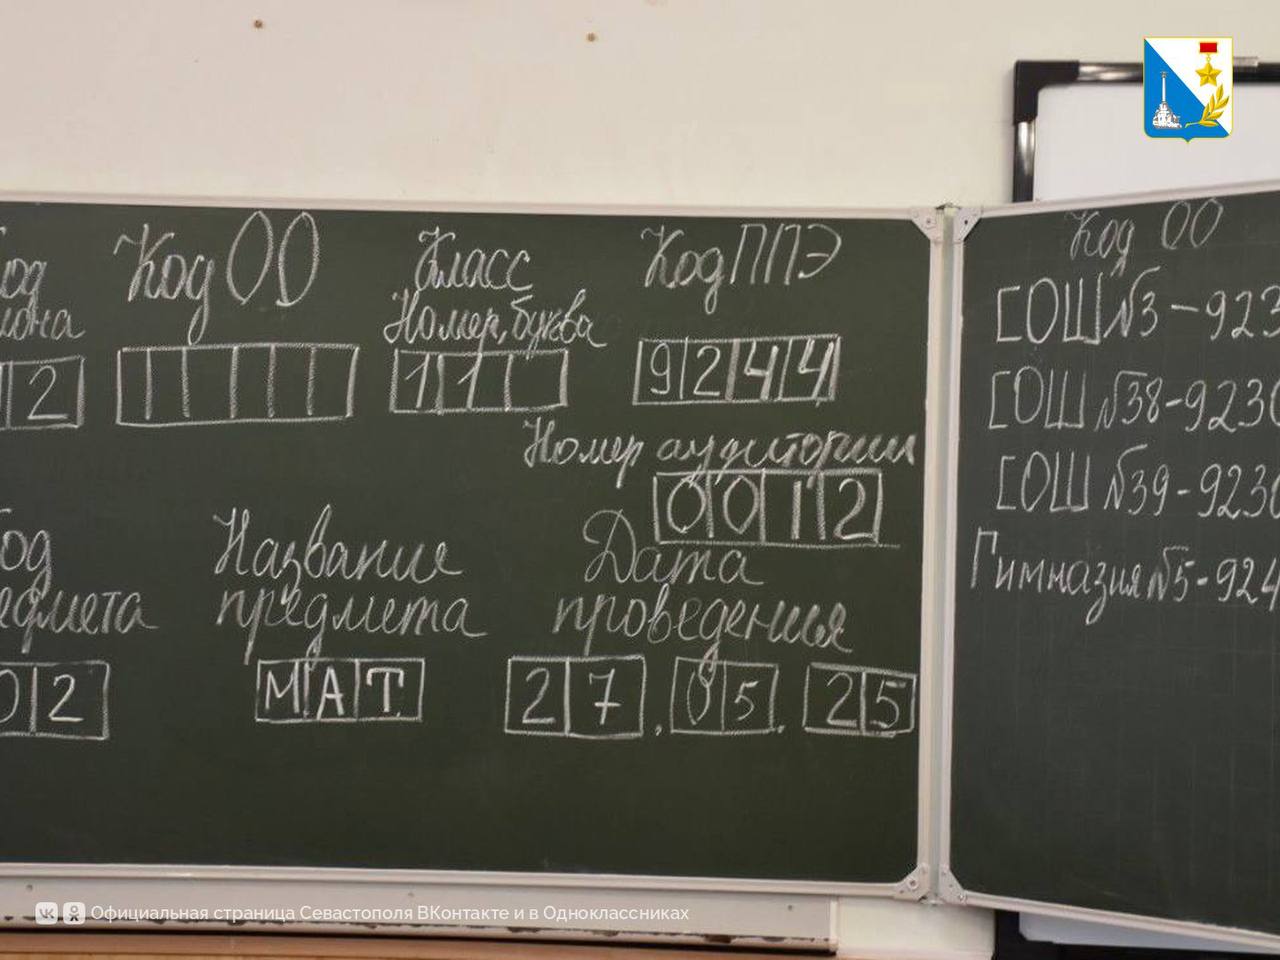 Код ОО
Класс
Номер, буква
Код ППЭ
2
1 1
9 2 4 4
Номер аудитории
0 0 1 2
Название
предмета
Дата
проведения
0 2
М А Т
2 7 . 0 5 . 2 5
Код ОО
СОШ №3 - 923
СОШ №38 - 9230
СОШ №39 - 9230
Гимназия №5 - 924
Официальная страница Севастополя ВКонтакте и в Одноклассниках